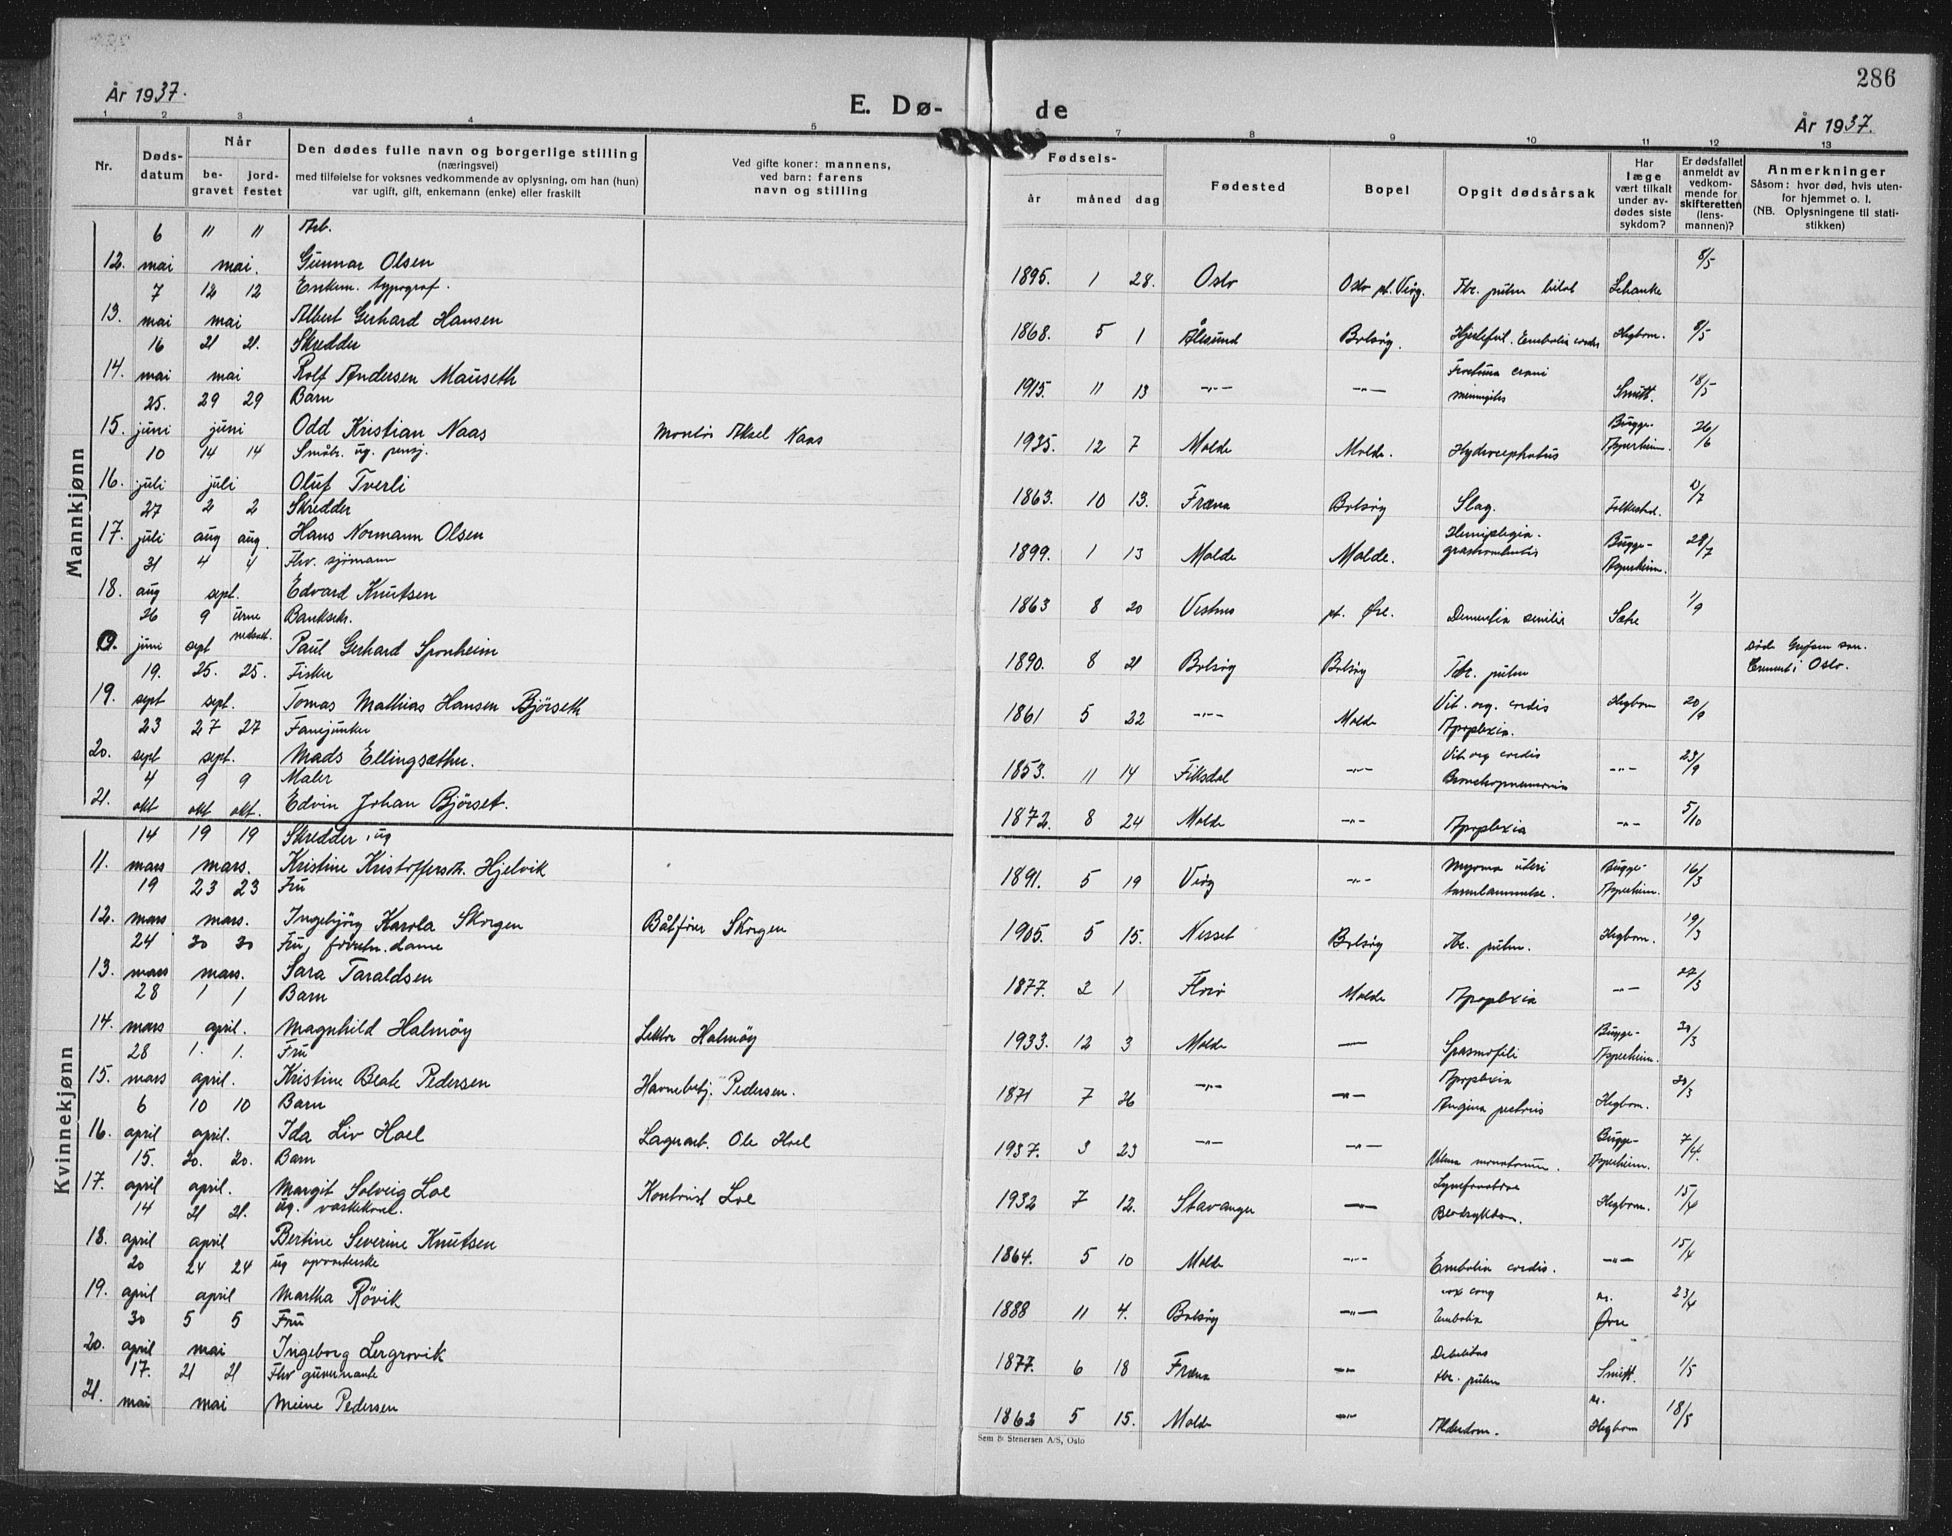 286
År 1937.
E. Dø- de
År 1937.
1 2 3 4 5 7 8 9 10 11 12 13
Nr.
Døds-
datum
Når
be-
gravet
jord-
festet
Den dødes fulle navn og borgerlige stilling
(næringsvei)
med tilføielse for voksnes vedkommende av oplysning, om han (hun)
var ugift, gift, enkemann (enke) eller fraskilt
Ved gifte koner: mannens,
ved barn: farens
navn og stilling
Fødsels-
år måned dag
Fødested
Bopel
Opgit dødsårsak
Har
læge
vært tilkalt
under av-
dødes siste
sykdom?
Er dødsfallet
anmeldt av
vedkom-
mende for
skifteretten
(lens-
mannen)?
Anmerkninger
Såsom: hvor død, hvis uten-
for hjemmet o. l.
(NB. Oplysningene til stati-
stikken)
Mannkjønn
6 " " Arb.
12. mai mai. Gunnar Olsen 1895. 1 28. Oslo Oslo pt. Veøy. Tbc. pulm bilat 8/5
7 12 12 Enkem. typograf.
13. mai mai Albert Gerhard Hansen 1868. 5 1 Ålesund Bolsøy. Embolia cordis Hegbom. 8/5
16 21 21. Skredder
14. mai mai Rolf Andersen Mauseth 1915. 11 13 -"- -"- Fractura cranii meningitis Smitt. 18/5
25. 29 29 Barn
15. juni juni Odd Kristian Naas Montør Aksel Naas 1935. 12 7 Molde Molde. Hydrocephalus Bugge- Asperheim. 26/6
10 14 14 Småbr. ug. pensj.
16. juli juli Oluf Tverli 1863. 10 13. Fræna Bolsøy Slag. Folkestad.
27 2 2 Skredder
17. juli aug aug. Hans Normann Olsen 1899. 1 13 Molde Molde. Hemiplegia. Bugge- Asperheim. 28/7
31 4 4 Fhv. sjømann
18. aug sept. Edvard Knutsen 1863 8 20 Vestnes pt. Øre. Dementia senilis Sæhe 1/9
26 9 urne nedsatt. Banksekr.
juni sept Paul Gerhard Sponheim 1890. 8 21 Bolsøy Bolsøy Tbc. pulm død Grefsen san. Cremert i Oslo.
19. 25. 25. Fisker
19. sept sept. Tomas Mathias Hansen Bjørseth 1861 5 22 -"- Molde Vit. org. cordis Apoplexia. Hegbom 20/9
23 27 27 Fanejunker
20. sept sept. Mads Ellingsæther. 1853. 11 14 Fiksdal -"- Vit org cordis Bronchopneumonia -"- 23/9
4 9 9 Maler
21. okt okt okt. Edvin Johan Bjørset. 1872. 8 24 Molde -"- Apoplexia -"- 5/10
Kvinnekjønn
14 19 19 Skredder, ug
11. mars mars. Kristine Kristoffersdt. Hjelvik 1891. 5 19 Veøy -"- Myoma uteri tarmlammelse. Bugge- Asperheim. 16/3
19 23 23 Fru
12. mars mars. Ingebjørg Karola Skorgen Båtfører Skorgen 1905. 5 15. Nesset Bolsøy Tbc. pulm. Hegbom. 19/3
24 30 30 Fru, forretn.dame
13. mars mars. Sara Taraldsen 1877. 2 1 Florø Molde Apoplexia -"- 27/3
28 1 1 Barn
14. mars april. Magnhild Halmøy Lektor Halmøy 1933. 12 3 Molde -"- Spasmofili Bugge- Asperheim. 30/3
28 1. 1. Fru
15. mars april. Kristine Beate Pedersen Havnebetj. Pedersen. 1871 7 26 -"- -"- Apoplexia Angina pectoris Hegbom. 30/3
6 10 10 Barn
16. april april. Ida Liv Hoel Lagerarb. Ole Hoel 1937. 3 23 -"- -"- Melena neonatorum. Bugge- Asperheim. 7/4.
15. 20. 20. Barn
17. april april. Margit Solveig Loe Kontorist Loe 1932 7 12. Stavanger -"- Blodsykdom. Hegbom. 15/4
14 21 21. ug. vaskekone.
18. april april Bertine Severine Knutsen 1864. 5 10 Molde -"- Embolia cordis. -"- 15/4
20 24 24 ug oppvarterske
19. april april Martha Røvik 1888 11 4. Bolsøy -"- Embolia 23/4
30 5 5 Fru
20. april mai Ingeborg Lergrovik 1877. 6 18 Fræna -"- Debilitas tbc. pulm Smitt. 1/5
17. 21 21 Fhv guvernante
21. mai mai Meine Pedersen 1862 5 15. Molde -"- Alderdom. Hegbom 18/5
Sem & Stenersen A/S, Oslo